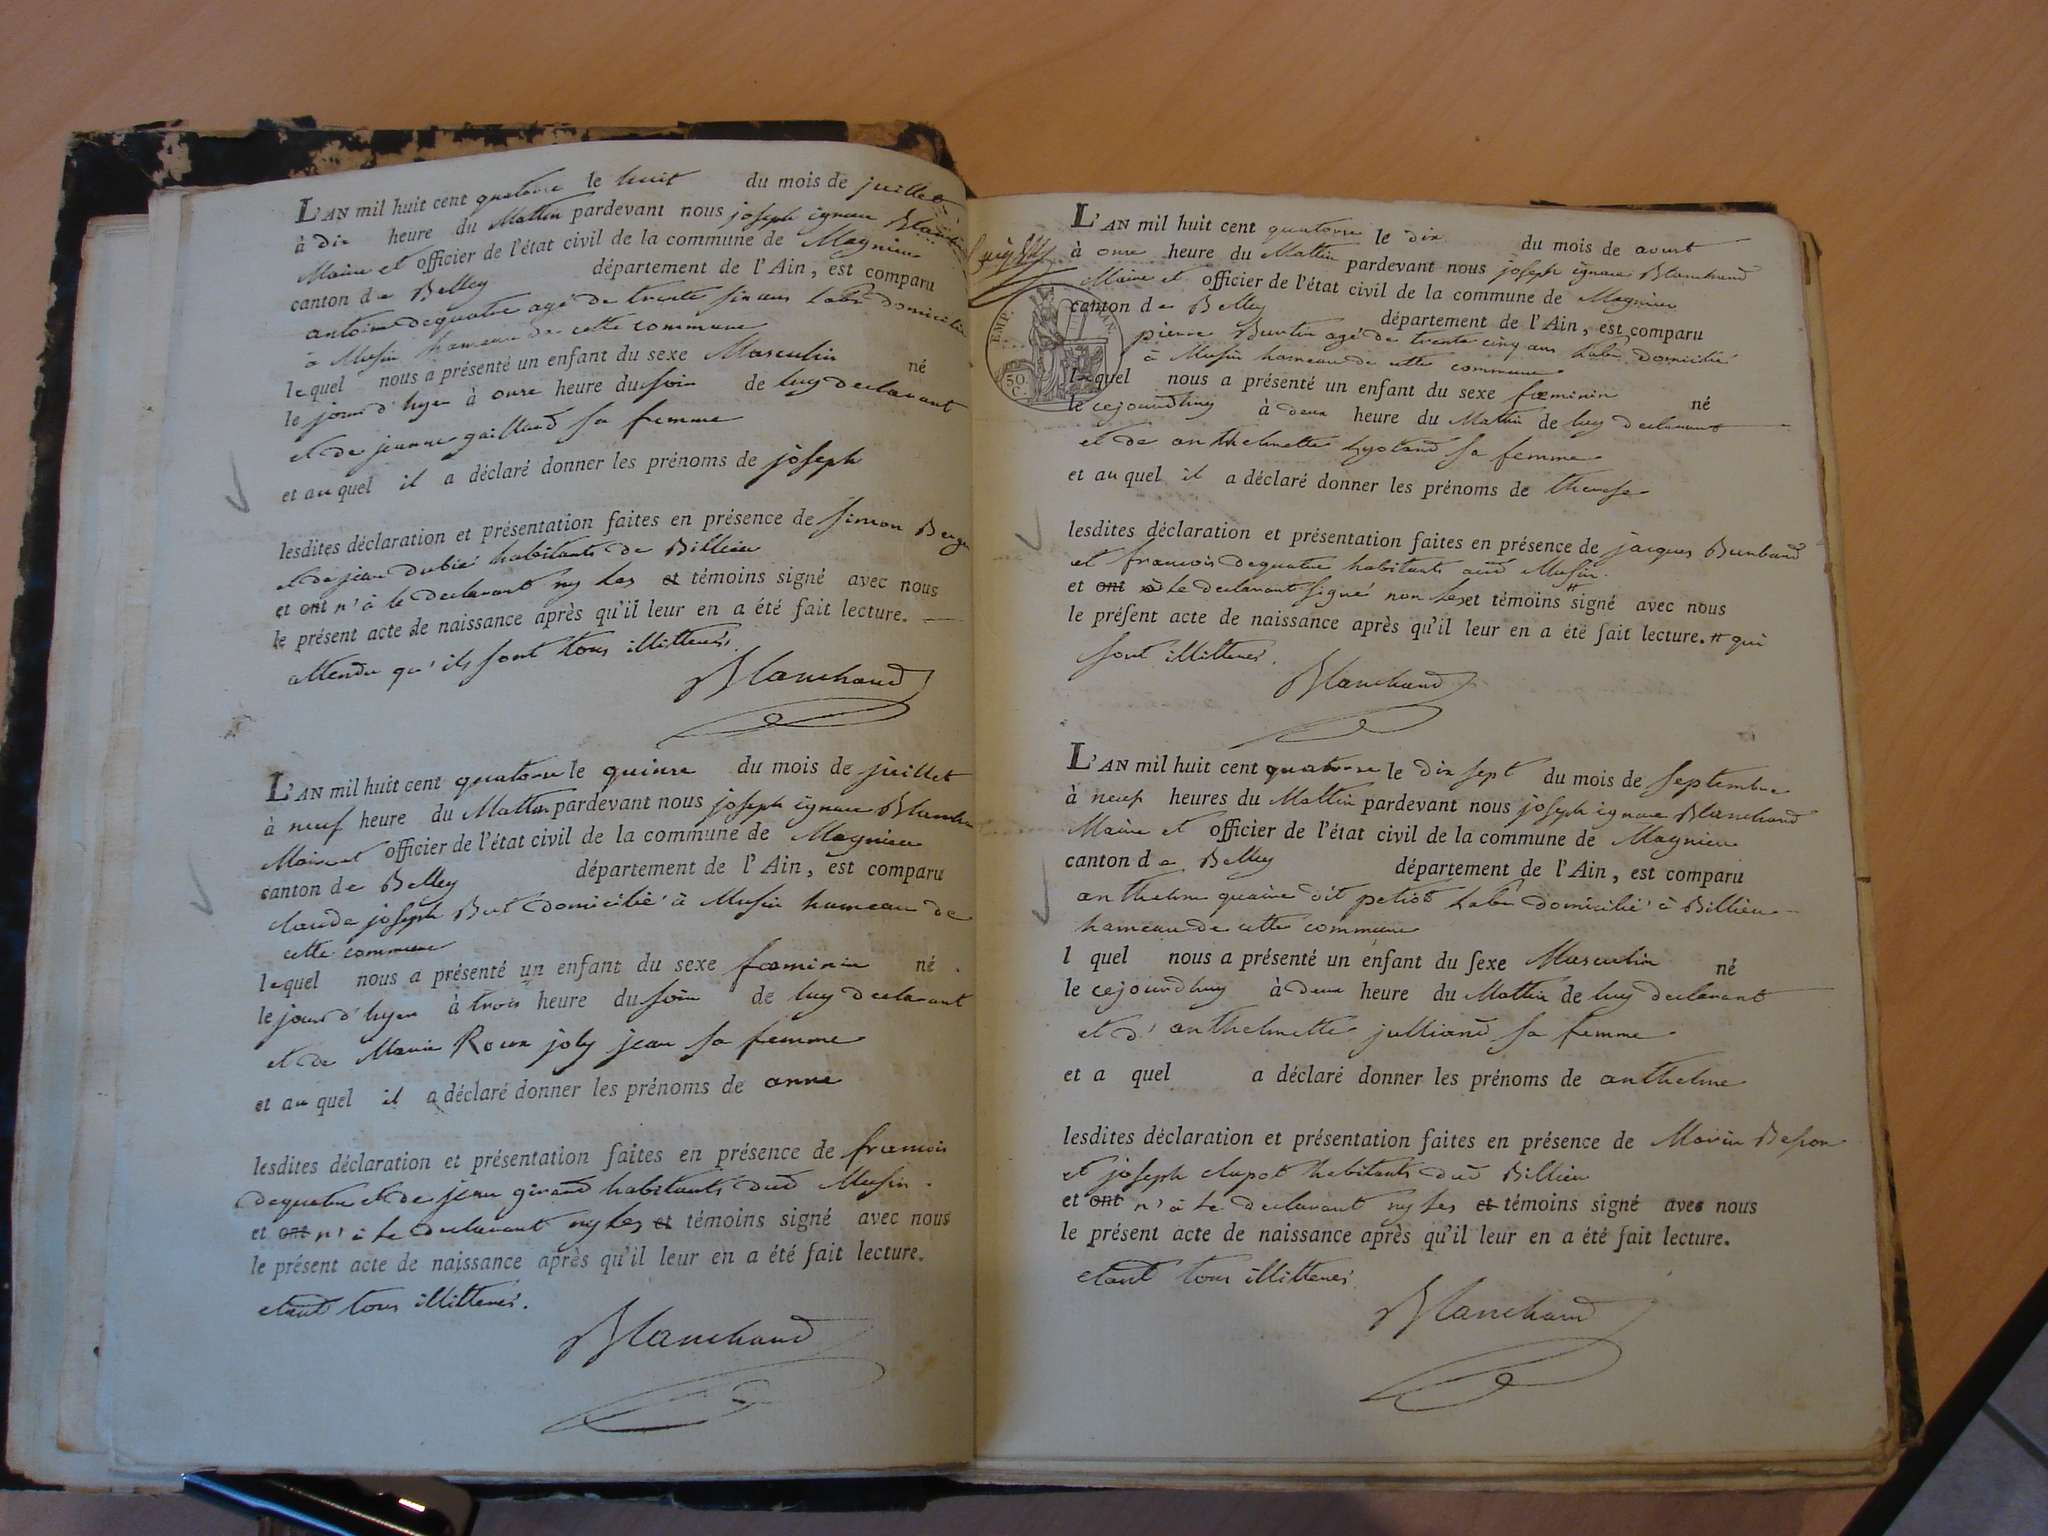 L'AN mil huit cent quatorze le huit du mois de juillet
à dix heure du Mattin pardevant nous joseph ignace
Maire et officier de l'état civil de la commune de Magnieu
canton de Belley département de l'Ain, est comparu
antoine dequatre agé de trente six ans domicilié
à Musin hameau de cette commune
lequel nous a présenté un enfant du sexe Masculin né
le jour d'hyer à onze heure du soir de luy declarant
et de jeanne gaillard sa femme
et au quel il a déclaré donner les prénoms de joseph
lesdites déclaration et présentation faites en présence de simon
et de jean dubié habitants de Billieu
et ont n'à le declarant ny les et témoins signé avec nous
le présent acte de naissance après qu'il leur en a été fait lecture.
attendu qu'ils sont tous illitterés.
Blanchard
L'AN mil huit cent quatorze le quinze du mois de juillet
à neuf heure du Mattin pardevant nous joseph ignace
Maire et officier de l'état civil de la commune de Magnieu
canton de Belley département de l'Ain, est comparu
claude joseph But domicilié à Musin hameau de
cette commune
lequel nous a présenté un enfant du sexe fœminin né
le jour d'hyer à trois heure du soir de luy declarant
et de Marie joly jean sa femme
et au quel il a déclaré donner les prénoms de anne
lesdites déclaration et présentation faites en présence de francois
dequatre et de jean girard habitants dud Musin.
et ont n'à le declarant ny les et témoins signé avec nous
le présent acte de naissance après qu'il leur en a été fait lecture.
etant tous illitterés.
Blanchard
L'AN mil huit cent quatorze le dix du mois de aoust
à onze heure du Mattin pardevant nous joseph ignace Blanchard
Maire et officier de l'état civil de la commune de Magnieu
canton de Belley département de l'Ain, est comparu
pierre Burtin agé de trente cinq ans domicilié
à Musin hameau de cette commune
lequel nous a présenté un enfant du sexe fœminin né
le cejourdhuy à deux heure du Mattin de luy declarant
et de anthelmette sa femme
et au quel il a déclaré donner les prénoms de therese
lesdites déclaration et présentation faites en présence de jacques
et francois dequatre habitants aud Musin.
et ont à le declarant signé non les et témoins # signé avec nous
le présent acte de naissance après qu'il leur en a été fait lecture. # qui
sont illitterés.
Blanchard
EMP.
50
C.
L'AN mil huit cent quatorze le dix sept du mois de septembre
à neuf heures du Mattin pardevant nous joseph ignace Blanchard
Maire et officier de l'état civil de la commune de Magnieu
canton de Belley département de l'Ain, est comparu
anthelme dit petiot domicilié à Billieu
hameau de cette commune
l quel nous a présenté un enfant du sexe Masculin né
le cejourdhuy à deux heure du Mattin de luy declarant
et d'anthelmette julliand sa femme
et a quel a déclaré donner les prénoms de anthelme
lesdites déclaration et présentation faites en présence de Marin
et joseph clapot habitants dud Billieu
et ont n'à le declarant ny les et témoins signé avec nous
le présent acte de naissance après qu'il leur en a été fait lecture.
etant tous illitterés.
Blanchard